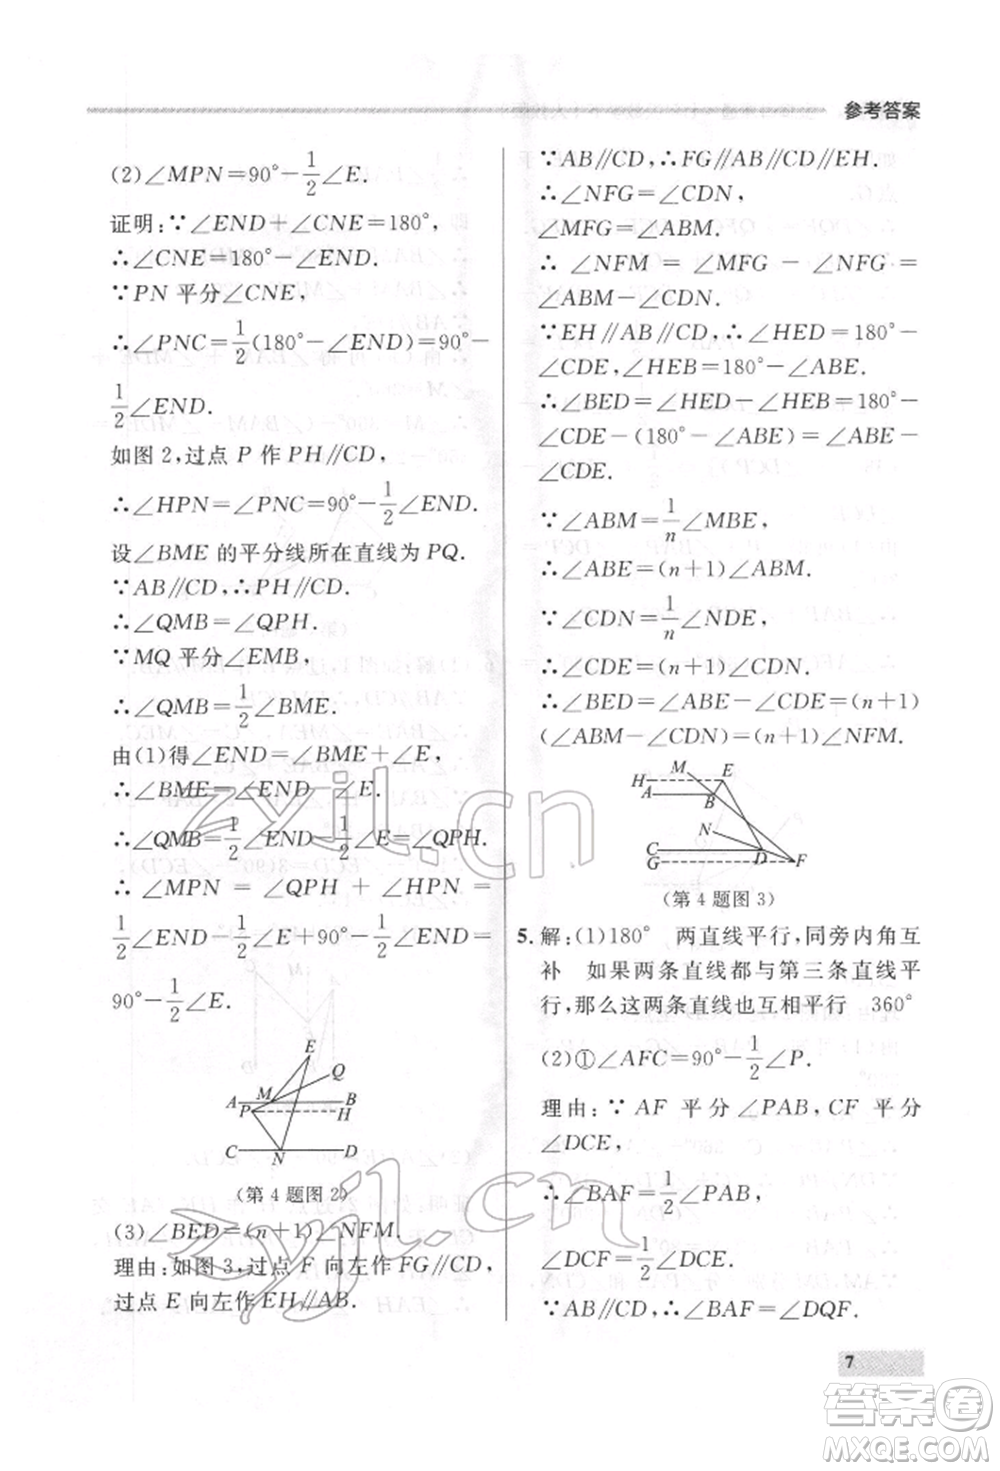 参考答案
(2)∠MPN=90°-1/2∠E.
证明:∵∠END+∠CNE=180°,
∴∠CNE=180°-∠END.
∵PN 平分∠CNE,
∴∠PNC=1/2(180°-∠END)=90°-
1/2∠END.
如图 2,过点 P 作 PH∥CD.
∴∠HPN=∠PNC=90°-1/2∠END.
设∠BME 的平分线所在直线为 PQ.
∵AB∥CD,∴PH∥AB.
∴∠QMB=∠QPH.
∵MQ 平分∠EMB,
∴∠QMB=1/2∠BME.
由(1)得∠END=∠BME+∠E,
∴∠BME=∠END-∠E.
∴∠QMB=1/2∠END-1/2∠E=∠QPH.
∴∠MPN=∠QPH+∠HPN=
1/2∠END-1/2∠E+90°-1/2∠END=
90°-1/2∠E.
E
Q
A M B
P H
C N D
(第 4 题图 2)
(3)∠BED=(n+1)∠NFM.
理由:如图 3,过点 F 向左作 FG∥CD,
过点 E 向左作 EH∥AB.
∵AB∥CD,∴FG∥AB∥CD∥EH.
∴∠NFG=∠CDN,
∠MFG=∠ABM.
∴∠NFM=∠MFG-∠NFG=
∠ABM-∠CDN.
∵EH∥AB∥CD,∴∠HED=180°-
∠CDE,∠HEB=180°-∠ABE.
∴∠BED=∠HED-∠HEB=180°-
∠CDE-(180°-∠ABE)=∠ABE-
∠CDE.
∵∠ABM=1/n∠MBE,
∴∠ABE=(n+1)∠ABM.
∵∠CDN=1/n∠NDE,
∴∠CDE=(n+1)∠CDN.
∴∠BED=∠ABE-∠CDE=(n+1)
(∠ABM-∠CDN)=(n+1)∠NFM.
M
H E
A B
N
C D
G F
(第 4 题图 3)
5. 解:(1)180° 两直线平行,同旁内角互
补 如果两条直线都与第三条直线平
行,那么这两条直线也互相平行 360°
(2)①∠AFC=90°-1/2∠P.
理由:∵AF 平分∠PAB,CF 平分
∠DCE,
∴∠BAF=1/2∠PAB,
∠DCF=1/2∠DCE.
∵AB∥CD,∴∠BAF=∠DQF.
7
zyjl.cn
zyjl.cn
答案圈
MXQE.COM